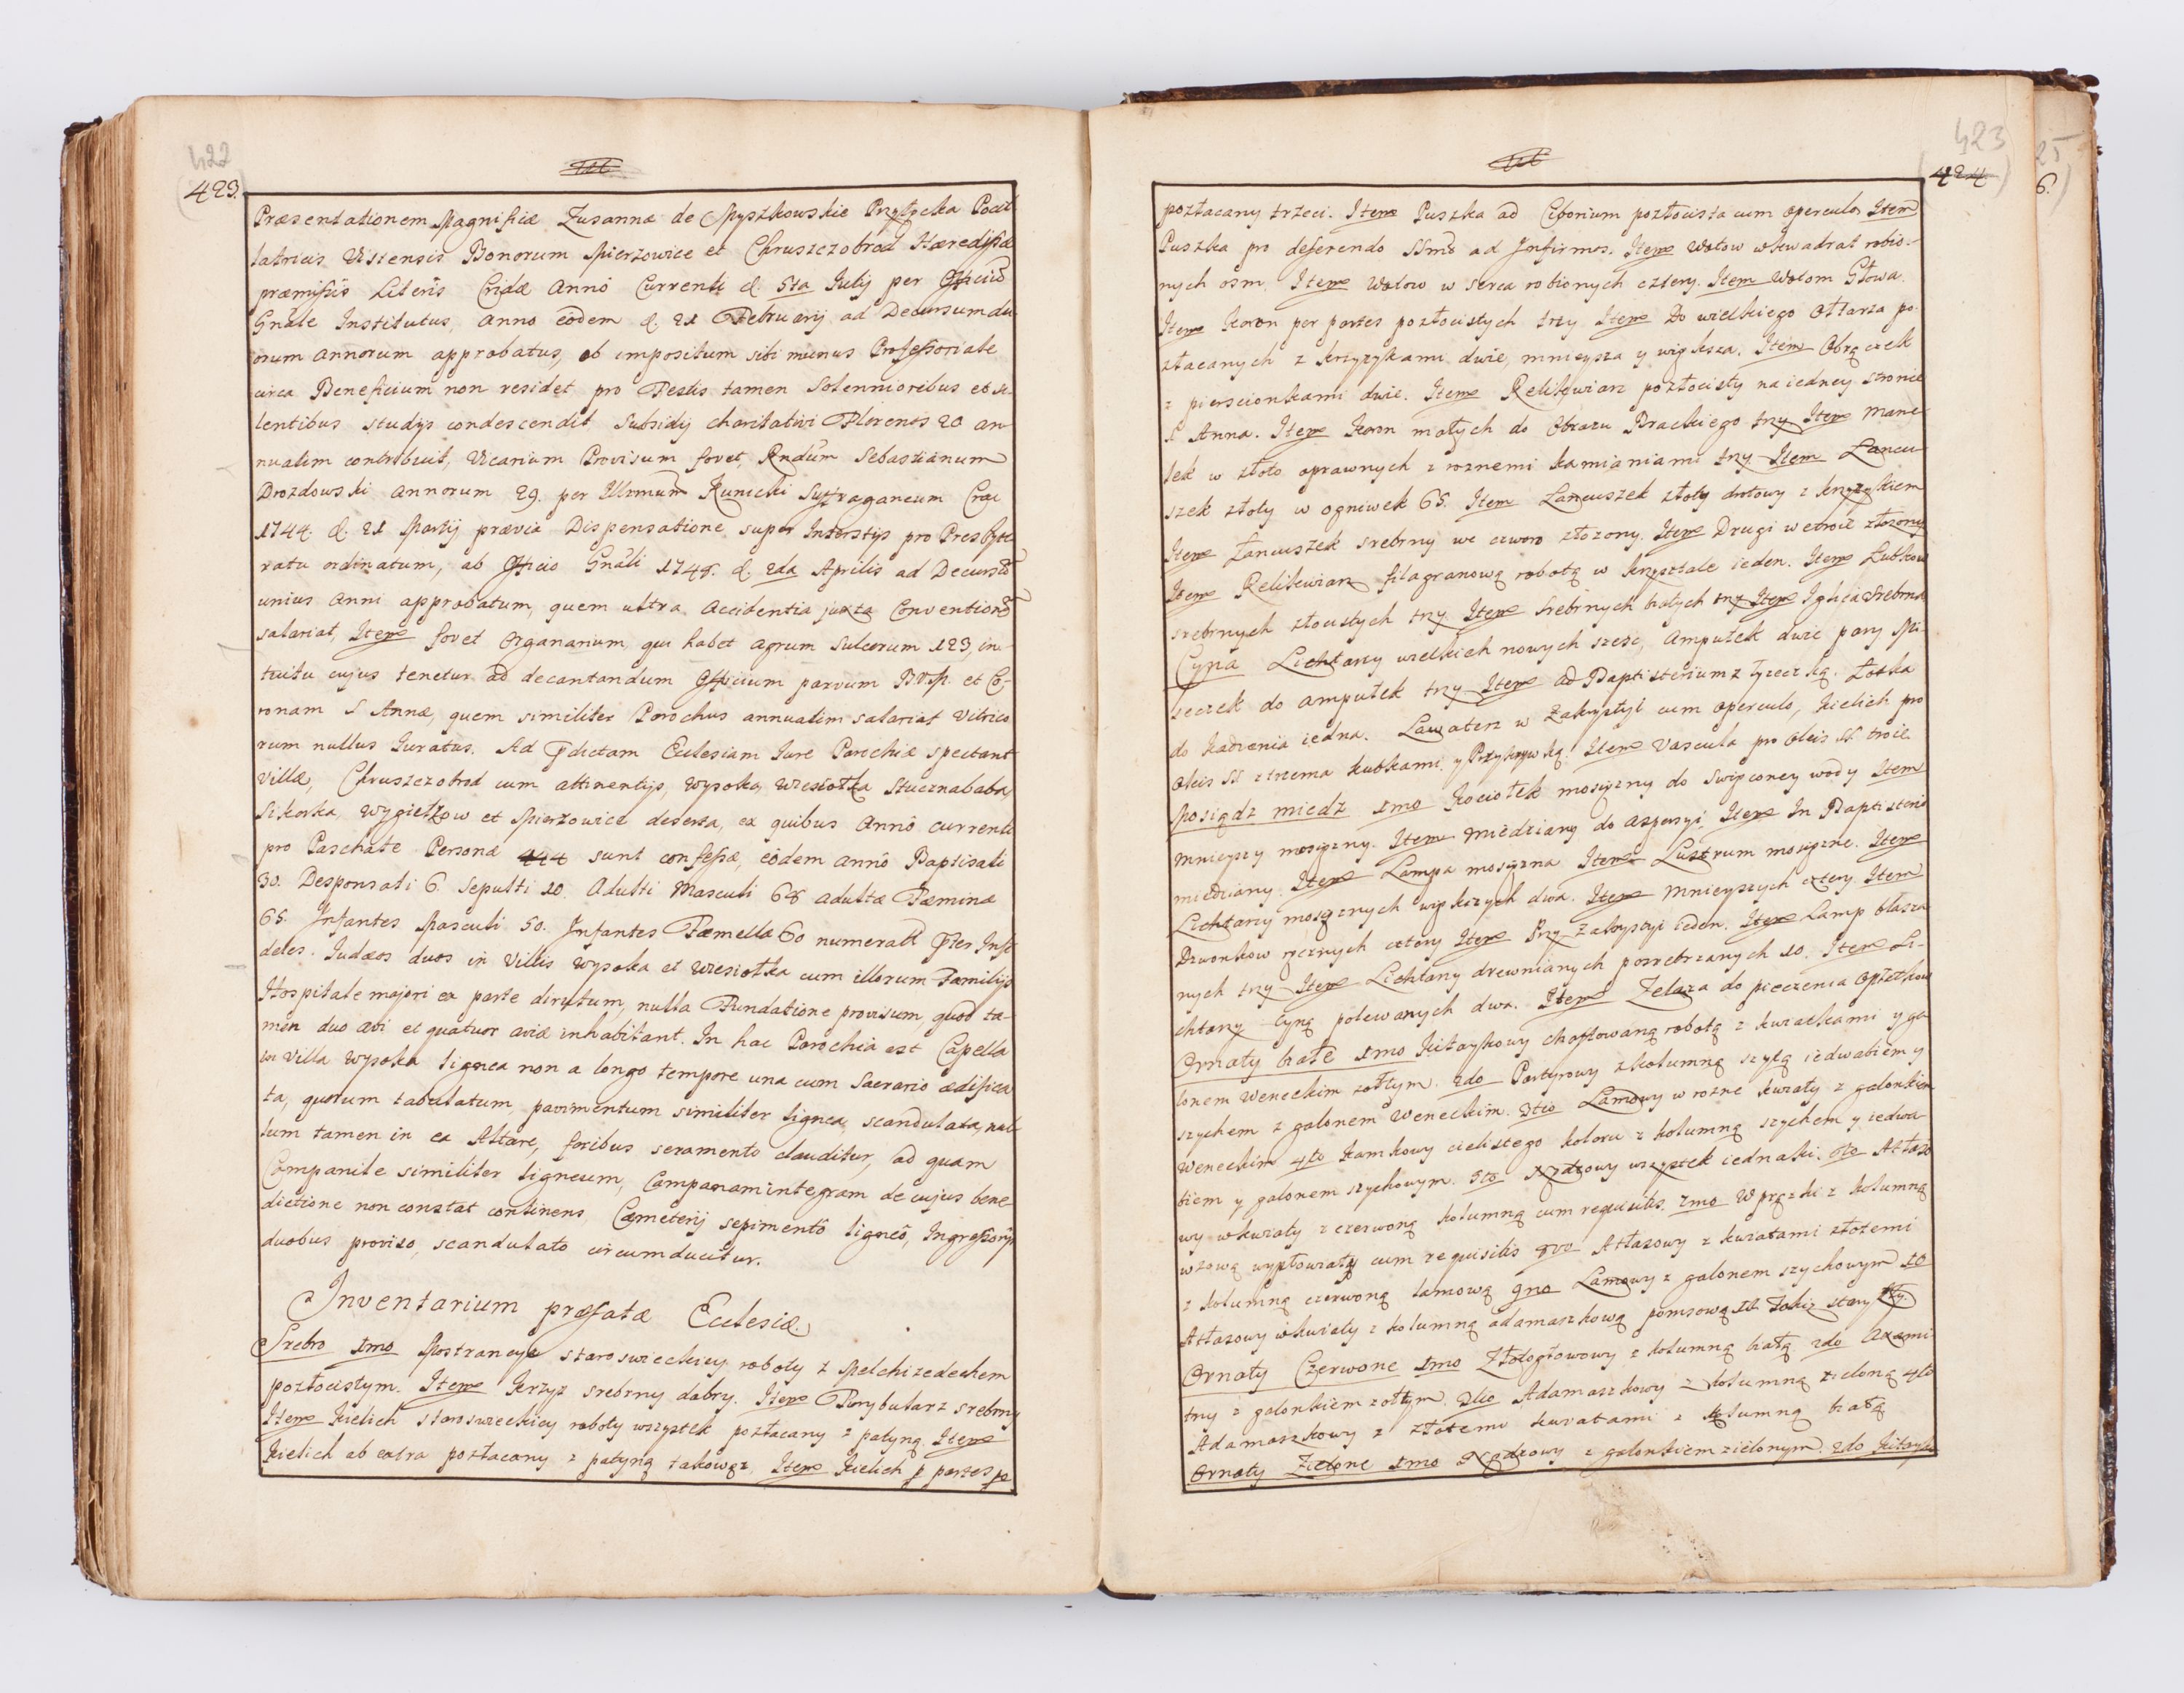 422
423.
Præsentationem Magnificæ Zusannæ de Myszkowskie Przyłęcka Pocil
latricis Vistensis Bonorum Mierzowice et Chruszczobrod Hæredissæ
præmissis Literis Cridæ Annô Currenti d. 5ta Julij per Officiũ
Gnãle Institutus, Anno eôdem d. 21 Februarij ad Decursum du
orum annorum approbatus, ob impositum sibi munus Professoriale
circa Beneficium non residet pro Festis tamen Solennioribus et si-
lentibus studijs condescendit Subsidij charitativi Florenos 20 an-
nuatim contribuit, Vicarium Provisum fovet, Rndũm Sebastianum
Drozdowski annorum 29. per Illrmum Kunicki Suffraganeum Crac
1744. d. 21 Martij prævia Dispensatione super Interstijs pro Presbyte
ratu ordinatum, ab Officio Gnãli 1748. d. 2da Aprilis ad Decursũ
unius anni approbatum, quem ultra Accidentia juxta Conventionẽ
salariat, Item fovet Organarium, qui habet agrum Sulcorum 123, in-
tuitu cujus tenetur ad decantandum Officium parvum B.V.M. et Co-
ronam S Annæ, quem similiter Parochus annuatim salariat Vitrico
rum nullus Juratus. Ad Pdictam Ecclesiam Jure Parochiæ spectant
Villæ, Chruszczobrod cum attinentijs, Wysoka, Wiesiołka Stucznababa,
Sikorka, Wygiełzow et Mierzowice deserta, ex quibus Annô currenti
pro Paschate Personæ 444 sunt confessæ, eôdem annô Baptisati
30. Desponsati 6. Sepulti 10. Adulti Masculi 68 adultæ Fæminæ
65. Infantes Masculi 50. Infantes Fæmellæ 60 numerant Pter Infi
deles. Judæos duos in Villis Wysoka et Wiesiołka cum illorum Familijs
Hospitale majori ex parte dirutum, nulla Fundatione provisum, quod ta-
men duo avi et quatuor aviæ inhabitant. In hac Parochia est Capella
in Villa Wysoka lignea non a longo tempore una cum Sacrario ædifica
ta, quorum tabulatum, pavimentum similiter lignea, scandulata, nul
lum tamen in ea Altare, foribus seramento clauditur, ad quam
Campanile similiter ligneum, Campanam integram de cujus bene
dictione non constat continens, Cæmeterij sepimentô ligneô, Ingressorijs
duobus proviso, scandulato circumducitur.
Inventarium præfatæ Ecclesiæ.
Srebro 1mo Monstrancya staroswieckiey roboty z Melchizedechem
pozłocistym. Item Krzyz srebrny dobry. Item Trybularz srebrny
Item Kielich staroswieckiey roboty wszystek pozłacany z patyną. Item
Kielich ab extra pozłacany z patyną takowąz, Item Kielich p partes po
423
424
pozłacany trzeci. Item Puszka ad Ciborium pozłocista cum operculo Item
Puszka pro deferendo SSmo ad Infirmos. Item Wotow wkwadrat robio-
nych osm. Item Wotow w serca robionych cztery. Item Wotom Głowa.
Item Koron per partes pozłocistych trzy. Item Do wielkiego Ołtarza po-
złacanych z krzyzykami dwie, mnieysza y większa. Item Obrączek
z pierscionkami dwie. Item Relikwiarz pozłocisty na iedney stronie
S Anna. Item Koron małych do Obrazu Brackiego trzy Item Mane-
lek w złoto oprawnych z roznemi kamianiami trzy Item Łancu-
szek złoty w ogniwek 65. Item Lancuszek złoty drotowy z krzyzykiem
Item Łancuszek srebrny we czworo złozony. Item Drugi wetroie złozony
Item Relikwiarz filagranową robotą w krysztale ieden. Item Lubkow
srebrnych złocistych trzy. Item Srebrnych białych trzy Item Iglica Srebrna
Cyna Lichtarzy wielkich nowych szesc, Ampułek dwie pary Mi-
seczek do ampułek trzy Item ad Baptisterium z łyzeczką. Łotka
do kadzenia iedna. Lawaterz w Zakrystyi cum operculo, Kielich pro
Oleis SS z trzema kubkami y Przykrywką. Item Vascula pro Oleis SS troie
Mosiądz miedz 1mo Kociołek mosięzny do Swięconey wody Item
Mnieyszy mosięzny. Item Miedziany do aspersyi, Item In Baptisterio
miedziany. Item Lampa mosięzna Item Lustrum mosięzne. Item
Lichtarzy mosięznych większych dwa. Item Mnieyszych cztery. Item
Dzwonkow ręcznych cztery Item Przy Zakrystyi ieden. Item Lamp blasza
nych trzy Item Lichtarzy drewnianych posrebrzanych 10. Item Li-
chtarzy cyną polewanych dwa. Item Zelaza do pieczenia Opłatkow
Ornaty białe 1mo Kitaykowy chaftowaną robotą z kwiatkami y ga-
lonem Weneckim zołtym. 2do Partyrowy z kolumną szytą iedwabiem y
szychem z galonem Weneckim. 3tio Lamowy w rozne kwiaty z galonkiem
Weneckim 4to Kamkowy cielistego koloru z kolumną szychem y iedwa-
biem y galonem szychowym. 5to wszystek iednaki. 6to Atłaso
wy wkwiaty z czerwoną kolumną cum requisitis. 7mo W prązki z kolumną
wzową wypłowiałą cum requisitis 8vo Atłasowy z kwiatami złotemi
z kolumną czerwoną lamową 9no Lamowy z galonem szychowym 10
Atłasowy wkwiaty z kolumną adamaszkową pomsową 11 Takiz stary
Ornaty Czerwone 1mo Złotogłowowy z kolumną białą 2do Axami-
tny z galonkiem zołtym. 3tio Adamaszkowy z kolumną zieloną 4to
Adamaszkowy z złotemi kwiatami z kolumną białą
Ornaty Zielone 1mo z galonkiem zielonym. 2do Kitayko